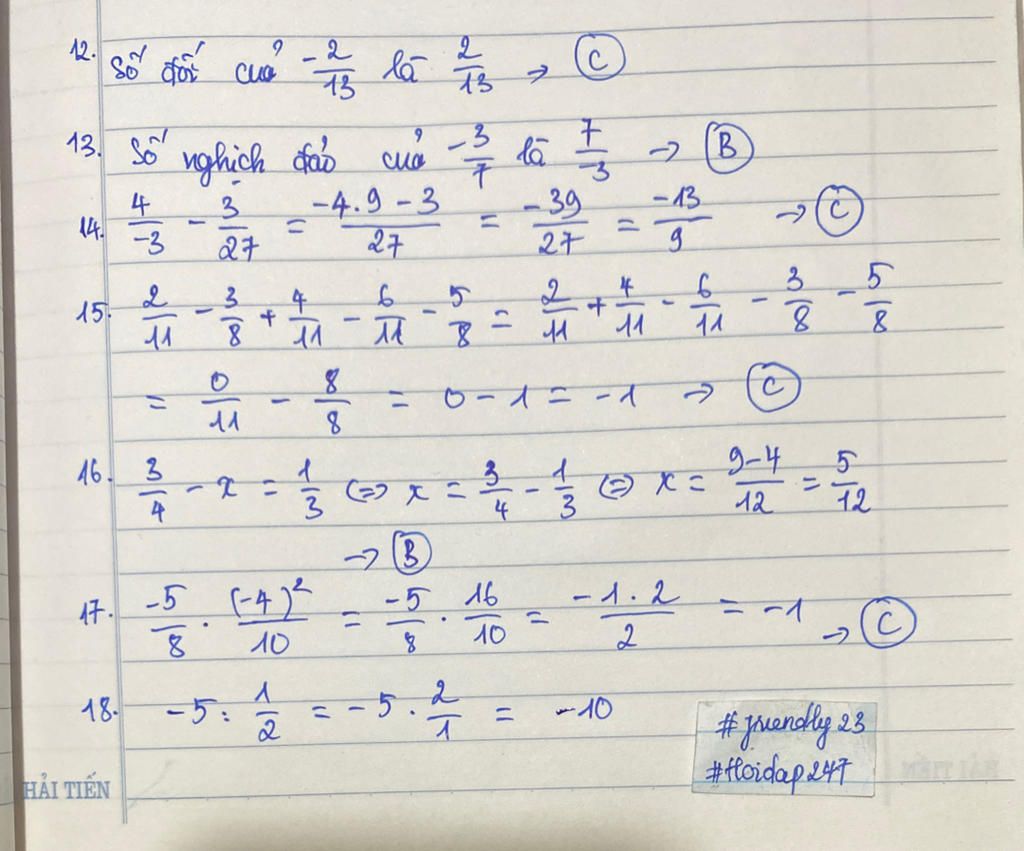 12. Số đối của -2/13 là 2/13 → C
13. Số nghịch đảo của -3/7 là 7/-3 → B
14. 4/-3 - 3/27 = (-4.9 - 3)/27 = -39/27 = -13/9 → C
15. 2/11 - 3/8 + 4/11 - 6/11 - 5/8 = 2/11 + 4/11 - 6/11 - 3/8 - 5/8
= 0/11 - 8/8 = 0 - 1 = -1 → C
16. 3/4 - x = 1/3 <=> x = 3/4 - 1/3 <=> x = (9-4)/12 = 5/12
→ B
17. -5/8 . (-4)²/10 = -5/8 . 16/10 = (-1.2)/2 = -1 → C
18. -5 : 1/2 = -5 . 2/1 = -10
# friendly 23
#Hoidap247
HẢI TIẾN